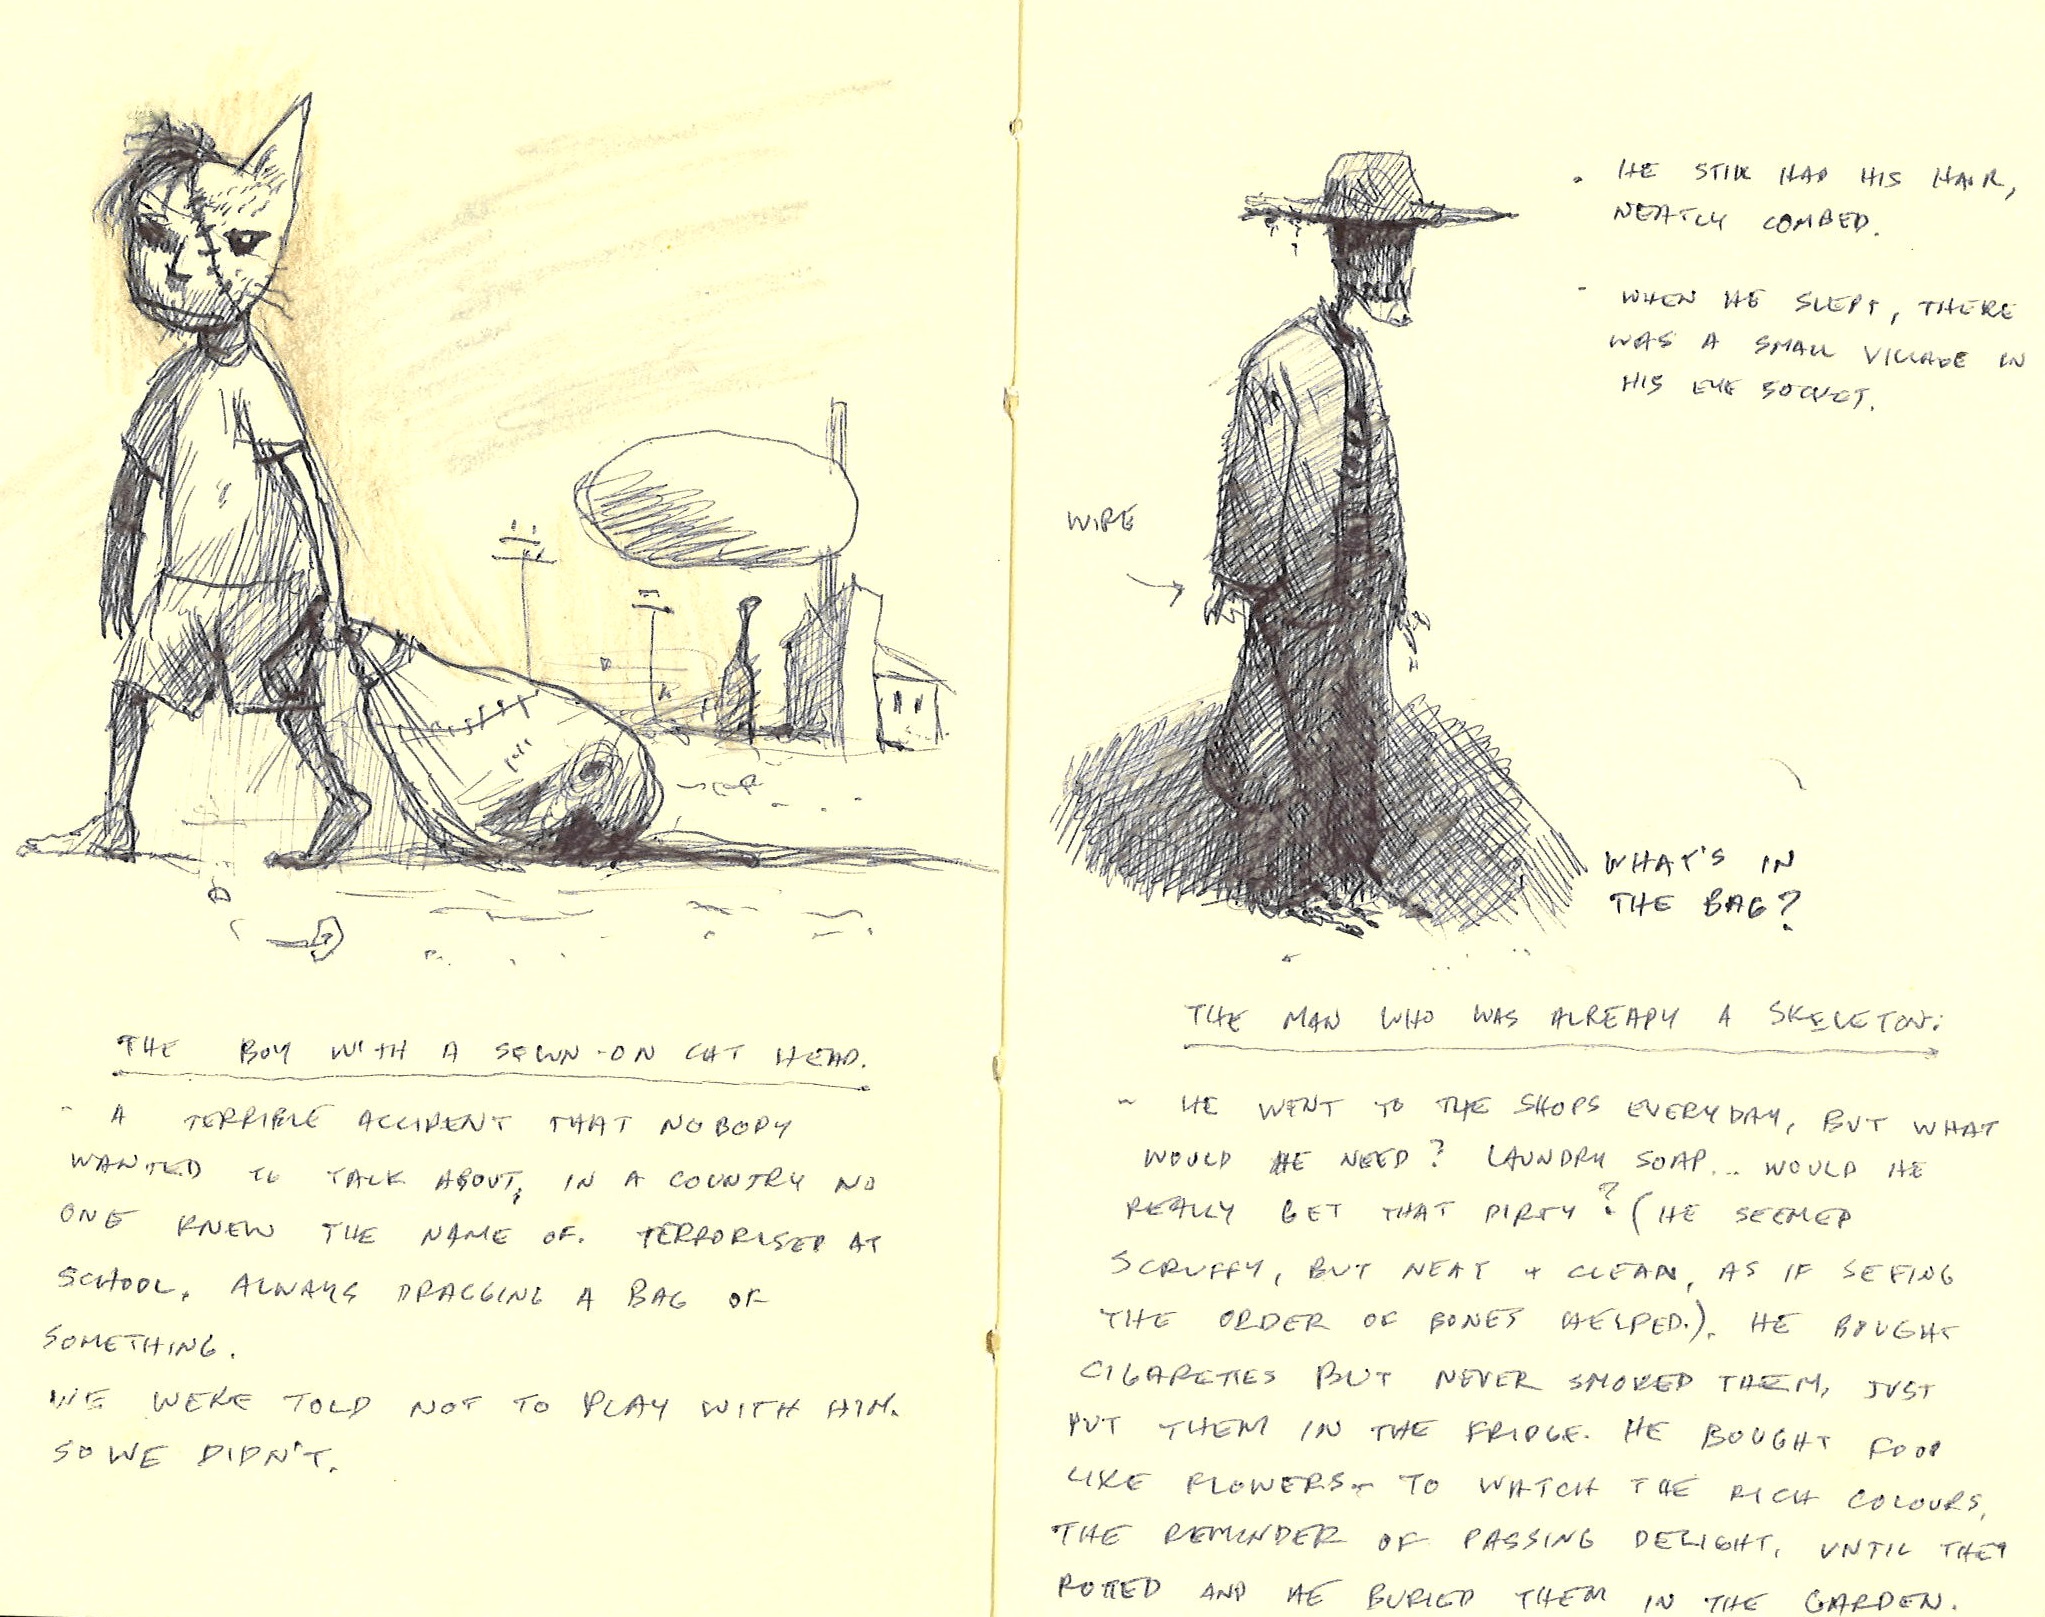 THE BOY WITH A SEWN-ON CAT HEAD.
- A TERRIBLE ACCIDENT THAT NOBODY
WANTED TO TALK ABOUT, IN A COUNTRY NO
ONE KNEW THE NAME OF. TERRORISED AT
SCHOOL. ALWAYS DRAGGING A BAG OF
SOMETHING.
WE WERE TOLD NOT TO PLAY WITH HIM.
SO WE DIDN'T.
- HE STILL HAD HIS HAIR,
NEATLY COMBED.
- WHEN HE SLEPT, THERE
WAS A SMALL VILLAGE IN
HIS EYE SOCKET.
WIRE
WHAT'S IN
THE BAG?
THE MAN WHO WAS ALREADY A SKELETON:
- HE WENT TO THE SHOPS EVERYDAY, BUT WHAT
WOULD HE NEED? LAUNDRY SOAP... WOULD HE
REALLY GET THAT DIRTY? (HE SEEMED
SCRUFFY, BUT NEAT + CLEAN, AS IF SEEING
THE ORDER OF BONES HELPED.). HE BOUGHT
CIGARETTES BUT NEVER SMOKED THEM, JUST
PUT THEM IN THE FRIDGE. HE BOUGHT FOOD
LIKE FLOWERS - TO WATCH THE RICH COLOURS,
THE REMINDER OF PASSING DELIGHT, UNTIL THEY
ROTTED AND HE BURIED THEM IN THE GARDEN.